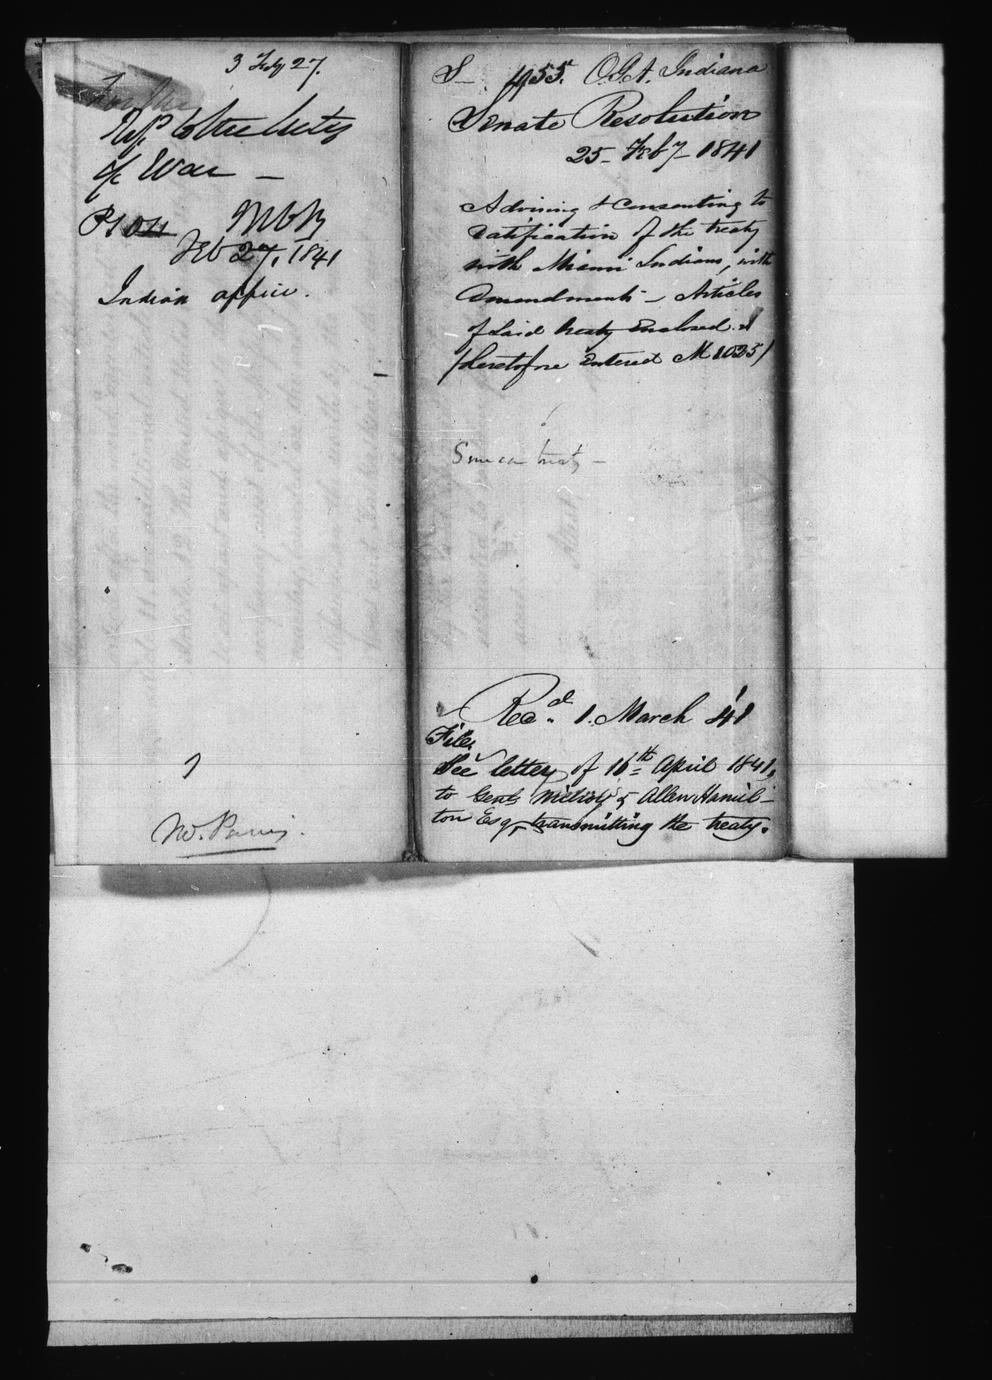 3 Feby 27.
Ref. to the Secty
of War —
MVB
Feb 27, 1841
Indian office.
S— 455. O.I.A. Indiana
Senate Resolution
25– Feby 1841
Advising & Consenting to
ratification of the treaty
with Miami Indians, with
Amendments – Articles
of said treaty Enclosed.
(heretofore Entered M 1025)
Seneca treaty –
Recd. 1. March 41
File,
See letter of 16th April 1841,
to Gent & Allen Hamil-
ton Esq, transmitting the treaty.